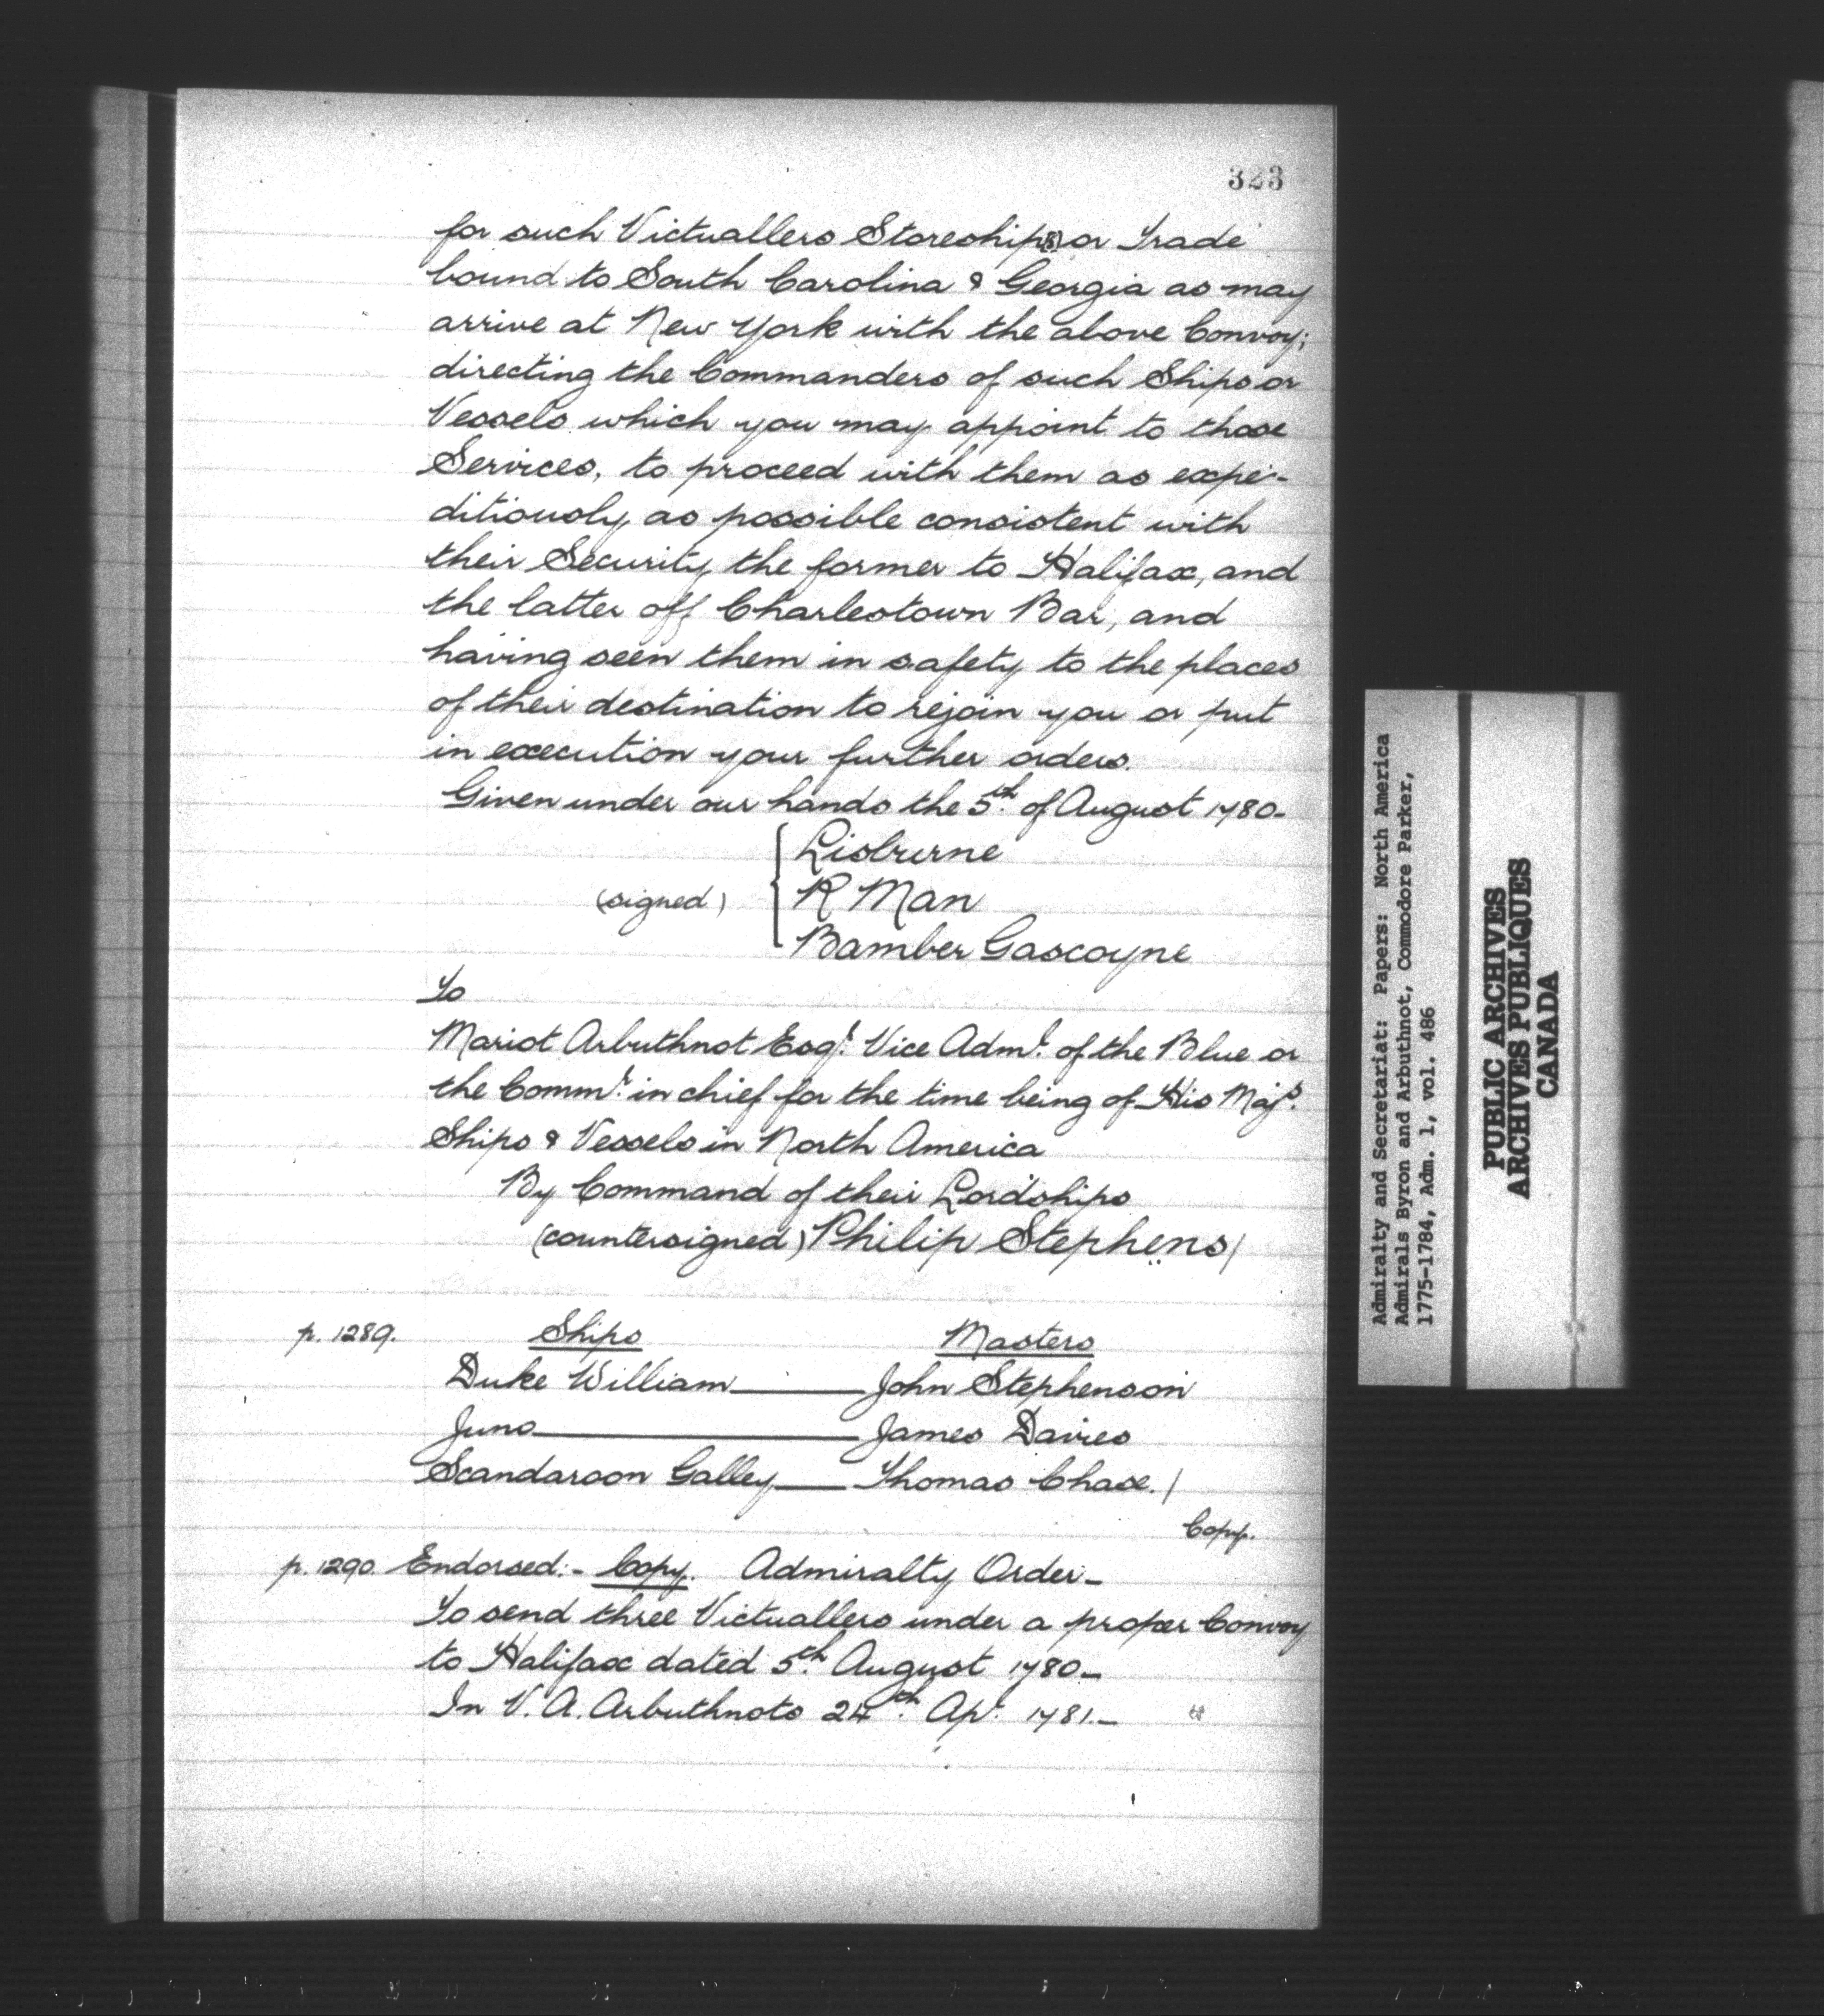 323
for such Victuallers Storeship(s) or Trade
bound to South Carolina & Georgia as may
arrive at New York with the above Convoy;
directing the Commanders of such Ships or
Vessels which you may appoint to those
Services, to proceed with them as expe-
ditiously as possible consistent with
their Security the former to Halifax, and
the latter off Charlestown Bar, and
having seen them in safety to the places
of their destination to rejoin you or put
in execution your further orders.
Given under our hands the 5th. of August 1780-
Lisburne
(signed) { R Man
Bamber Gascoyne
To
Mariot Arbuthnot Esqr. Vice Adml. of the Blue or
the Commr. in chief for the time being of His Majs.
Ships & Vessels in North America
By Command of their Lordships
(countersigned) Philip Stephens/
p. 1289. Ships Masters
Duke William — John Stephenson
Juno — James Davies
Scandaroon Galley — Thomas Chase./
Copy.
p. 1290. Endorsed:- Copy. Admiralty Order-
To send three Victuallers under a proper Convoy
to Halifax dated 5th. August 1780-
In V. A. Arbuthnots 24th. Apr. 1781.-
Admiralty and Secretariat: Papers: North America
Admirals Byron and Arbuthnot, Commodore Parker,
1775-1784, Adm. 1, vol. 486
PUBLIC ARCHIVES
ARCHIVES PUBLIQUES
CANADA